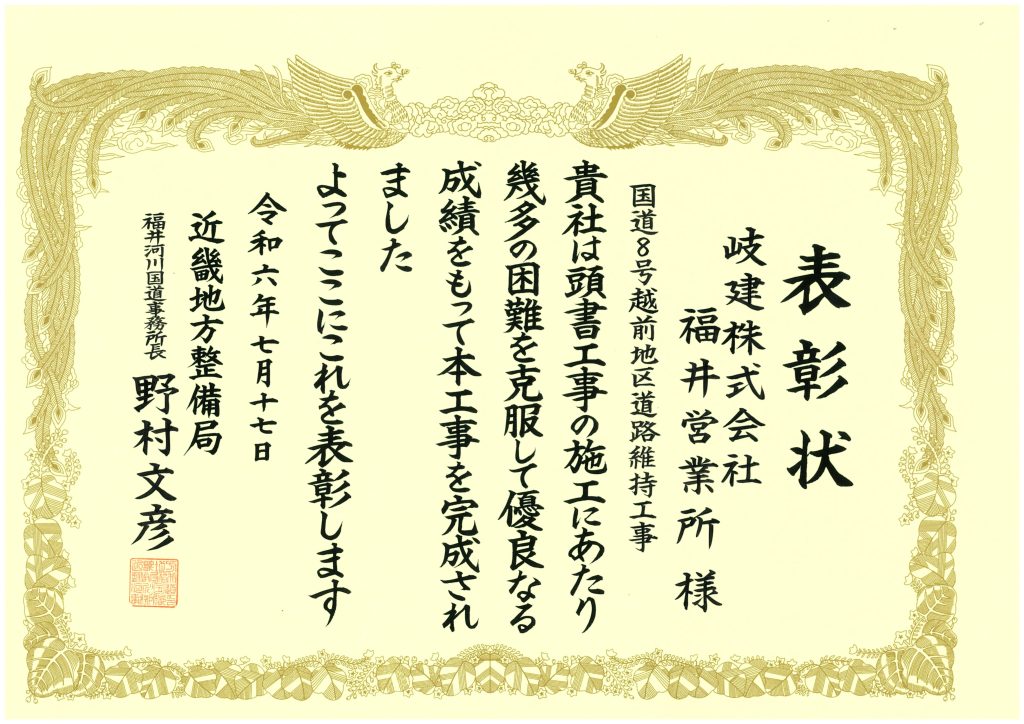 表彰状
岐建株式会社
福井営業所 様
国道8号越前地区道路維持工事
貴社は頭書工事の施工にあたり
幾多の困難を克服して優良なる
成績をもって本工事を完成され
ました
よってここにこれを表彰します
令和六年七月十七日
近畿地方整備局
福井河川国道事務所長 野村文彦